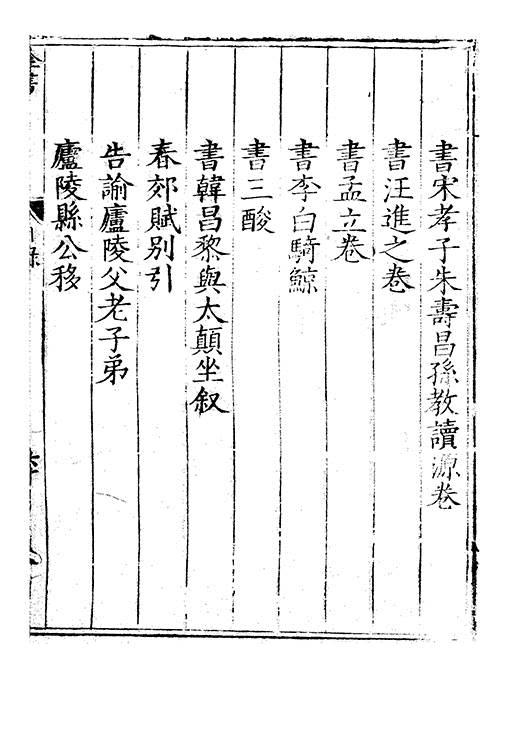 書宋孝子朱壽昌孫教讀源卷
書汪進之卷
書孟立卷
書李白騎鯨
書三酸
書韓昌黎與太顛坐叙
春郊賦别引
告諭廬陵父老子弟
廬陵縣公移